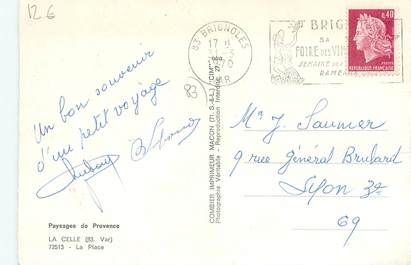 12 €
83 BRIGNOLES
17 H
31-3
1970
VAR
BRIG
SA
FOIRE DES VINS
SEMAINE
0,40
REPUBLIQUE FRANÇAISE
83
Un bon souvenir
d'un petit voyage
Mr J. Saumier
9 rue Général Brulard
Lyon 3e
69
COMBIER IMPRIMEUR MACON (71. S.-&-L.) "CIM"
Photographie Véritable - Reproduction Interdite
Paysages de Provence
LA CELLE (83. Var)
72515 - La Place